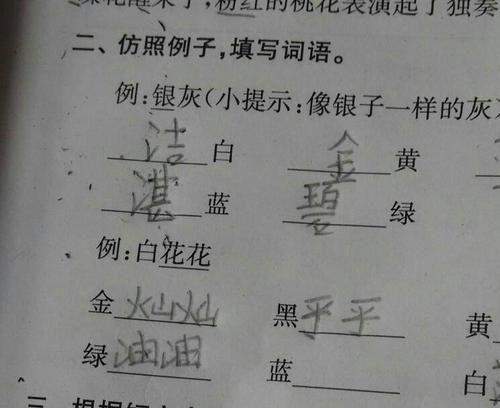 花醒来了,粉红的桃花表演起了独奏
二、仿照例子,填写词语。
例:银灰(小提示:像银子一样的灰
洁白 金黄
湛蓝 碧绿
例:白花花
金灿灿 黑乎乎 黄
绿油油 蓝 白
三、根据